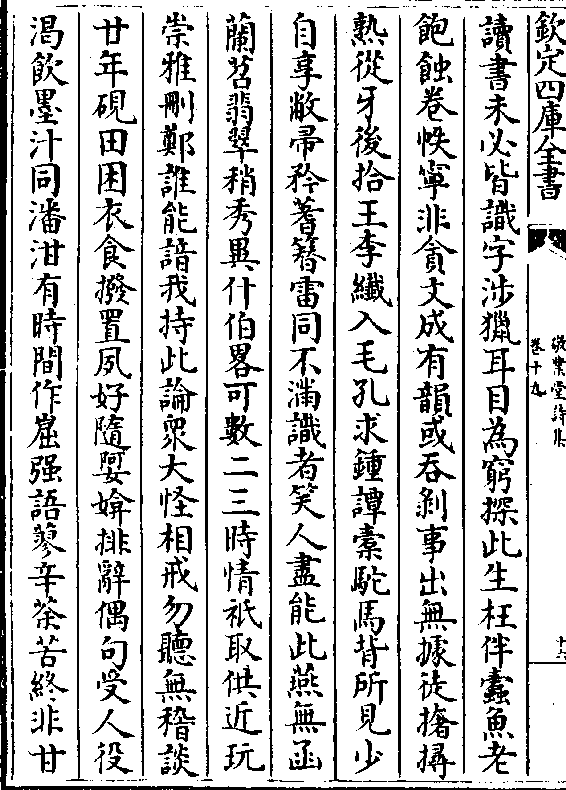 欽定四庫全書
敬業堂詩集
卷十九
十六
讀書未必皆識字涉獵耳目為窮探此生枉伴蠹魚老
飽蝕卷帙寧非貪文成有韻或吞剝事出無據徒撦撏
熟從牙後拾王李纖入毛孔求鍾譚橐駝馬背所見少
自享敝帚矜蓍簮雷同不滿識者笑人盡能此燕無函
蘭苕翡翠稍秀異什伯畧可數二三時情祇取供近玩
崇雅刪鄭誰能諳我持此論衆大怪相戒勿聽無稽談
廿年硯田困衣食撥置夙好隨媕婀排辭偶句受人役
渴飲墨汁同潘泔有時間作崛强語蓼辛荼苦終非甘